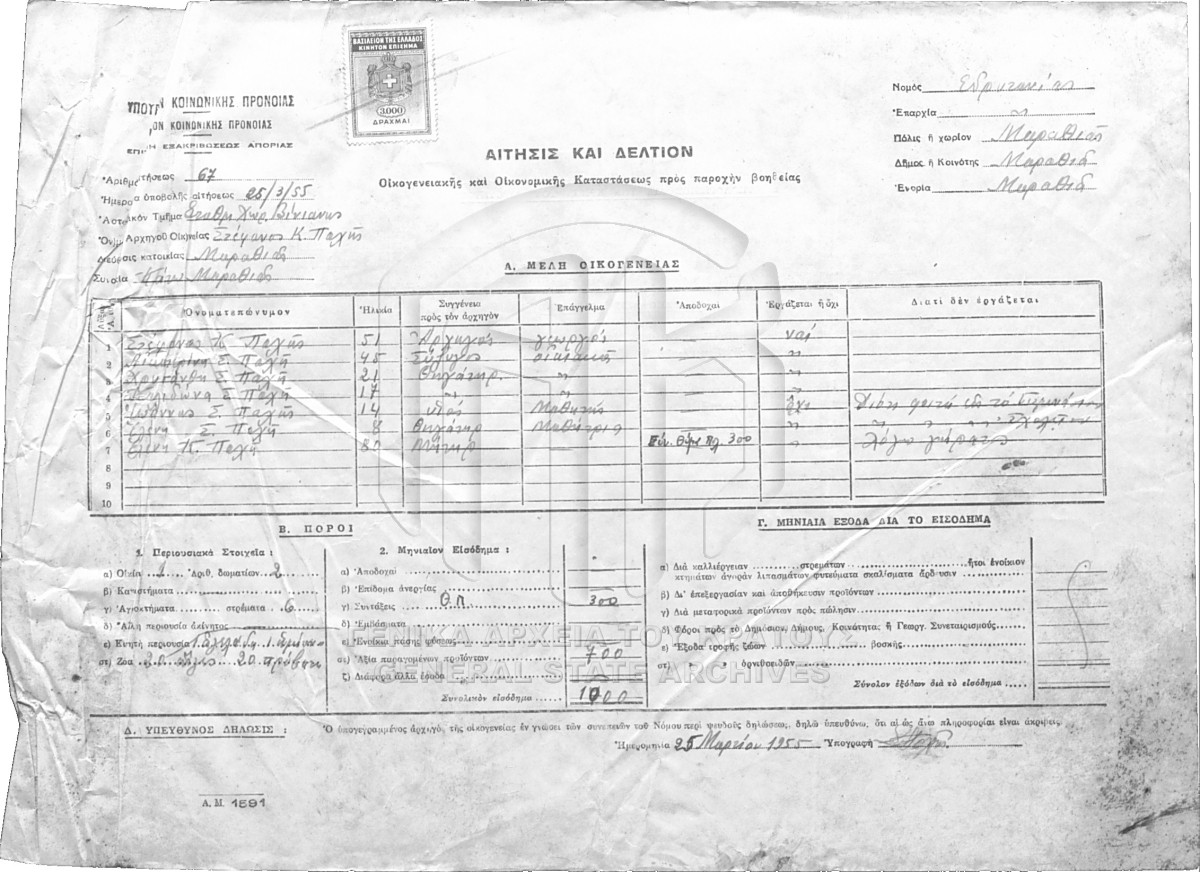 ΒΑΣΙΛΕΙΟΝ ΤΗΣ ΕΛΛΑΔΟΣ
ΚΙΝΗΤΟΝ ΕΠΙΣΗΜΑ
3.000
ΔΡΑΧΜΑΙ
ΚΟΙΝΩΝΙΚΗΣ ΠΡΟΝΟΙΑΣ
ΚΟΙΝΩΝΙΚΗΣ ΠΡΟΝΟΙΑΣ
ΕΞΑΚΡΙΒΩΣΕΩΣ ΑΠΟΡΙΑΣ
Ἀριθμ τήσεως 67
Ἡμερο α ὑποβολῆς αἰτήσεως 25/3/55
Ἀστ κὸν Τμῆμα Σταθμ Χωρ Βίνιανης
Ὀνομ Ἀρχηγοῦ Οἰκ νείας Στέφανος Κ. Παχῆς
κατοικίας Μαραθιᾶς
Μαραθιᾶς
Νομός Εὐρυτανίας
Ἐπαρχία "
Πόλις ἢ χωρίον Μαραθιᾶς
Δῆμος ἢ Κοινότης Μαραθιᾶ
Ἐνορία Μαραθιᾶ
ΑΙΤΗΣΙΣ ΚΑΙ ΔΕΛΤΙΟΝ
Οἰκογενειακῆς καὶ Οἰκονομικῆς Καταστάσεως πρὸς παροχὴν βοηθείας
Α. ΜΕΛΗ ΟΙΚΟΓΕΝΕΙΑΣ
Ὀνοματεπώνυμον Ἡλικία Συγγένεια πρὸς τὸν ἀρχηγὸν Ἐπάγγελμα Ἀποδοχαὶ Ἐργάζεται ἢ ὄχι Διατὶ δὲν ἐργάζεται
1 Στέφανος Κ. Παχῆς 51 Ἀρχηγὸς γεωργὸς ναί
2 Αἰκατερίνη Σ. Παχῆ 45 Σύζυγος οἰκιακὰ "
3 Χρυσάνθη Σ. Παχῆ 21 Θυγάτηρ " "
4 Σ. Παχῆ 17 " " "
5 Ἰωάννης Σ. Παχῆς 14 υἱὸς Μαθητὴς ὄχι Διότι φοιτᾶ εἰς τὸ
6 Ἑλένη Σ. Παχῆ 8 Θυγάτηρ Μαθήτρια "
7 Ἑλένη Κ. Παχῆ 80 Μήτηρ 300 " λόγω γήρατος
8
9
10
Β. ΠΟΡΟΙ
1. Περιουσιακὰ Στοιχεῖα :
α) Οἰκία 1 Ἀριθ. δωματίων 2
β) Καταστήματα
γ) Ἀγροκτήματα στρέματα 6
δ) Ἄλλη περιουσία ἀκίνητος
ε) Κινητὴ περιουσία 1 1
στ) Ζῶα 20 20 πρόβατα
2. Μηνιαῖον Εἰσόδημα :
α) Ἀποδοχαὶ
β) Ἐπίδομα ἀνεργίας
γ) Συντάξεις Θ.Π. 300
δ) Ἐμβάσματα
ε) Ἐνοίκια πάσης φύσεως
στ) Ἀξία παραγομένων προϊόντων 700
ζ) Διάφορα ἄλλα ἔσοδα
Συνολικὸν εἰσόδημα 1000
Γ. ΜΗΝΙΑΙΑ ΕΞΟΔΑ ΔΙΑ ΤΟ ΕΙΣΟΔΗΜΑ
α) Διὰ καλλιέργειαν στρεμάτων ἤτοι ἐνοίκιον
κτημάτων ἀγορὰν λιπασμάτων φυτεύματα σκαλίσματα ἄρδευσιν
β) Δι' ἐπεξεργασίαν καὶ ἀποθήκευσιν προϊόντων
γ) Διὰ μεταφορικὰ προϊόντων πρὸς πώλησιν
δ) Φόροι πρὸς τὸ Δημόσιον, Δήμους, Κοινότητας ἢ Γεωργ. Συνεταιρισμούς
ε) Ἔξοδα τροφῆς ζώων βοσκῆς
στ) " " ὀρνιθοειδῶν
Σύνολον ἐξόδων διὰ τὸ εἰσόδημα
ΓΕΝΙΚΑ ΑΡΧΕΙΑ ΤΟΥ ΚΡΑΤΟΥΣ
GENERAL STATE ARCHIVES
Δ. ΥΠΕΥΘΥΝΟΣ ΔΗΛΩΣΙΣ : Ὁ ὑπογεγραμμένος ἀρχηγὸς τῆς οἰκογενείας ἐν γνώσει τῶν συνεπειῶν τοῦ Νόμου περὶ ψευδοῦς δηλώσεως, δηλῶ ὑπευθύνως, ὅτι αἱ ὡς ἄνω πληροφορίαι εἶναι ἀκριβεῖς.
Ἡμερομηνία 25 Μαρτίου 1955 Ὑπογραφὴ
Α.Μ. 1591